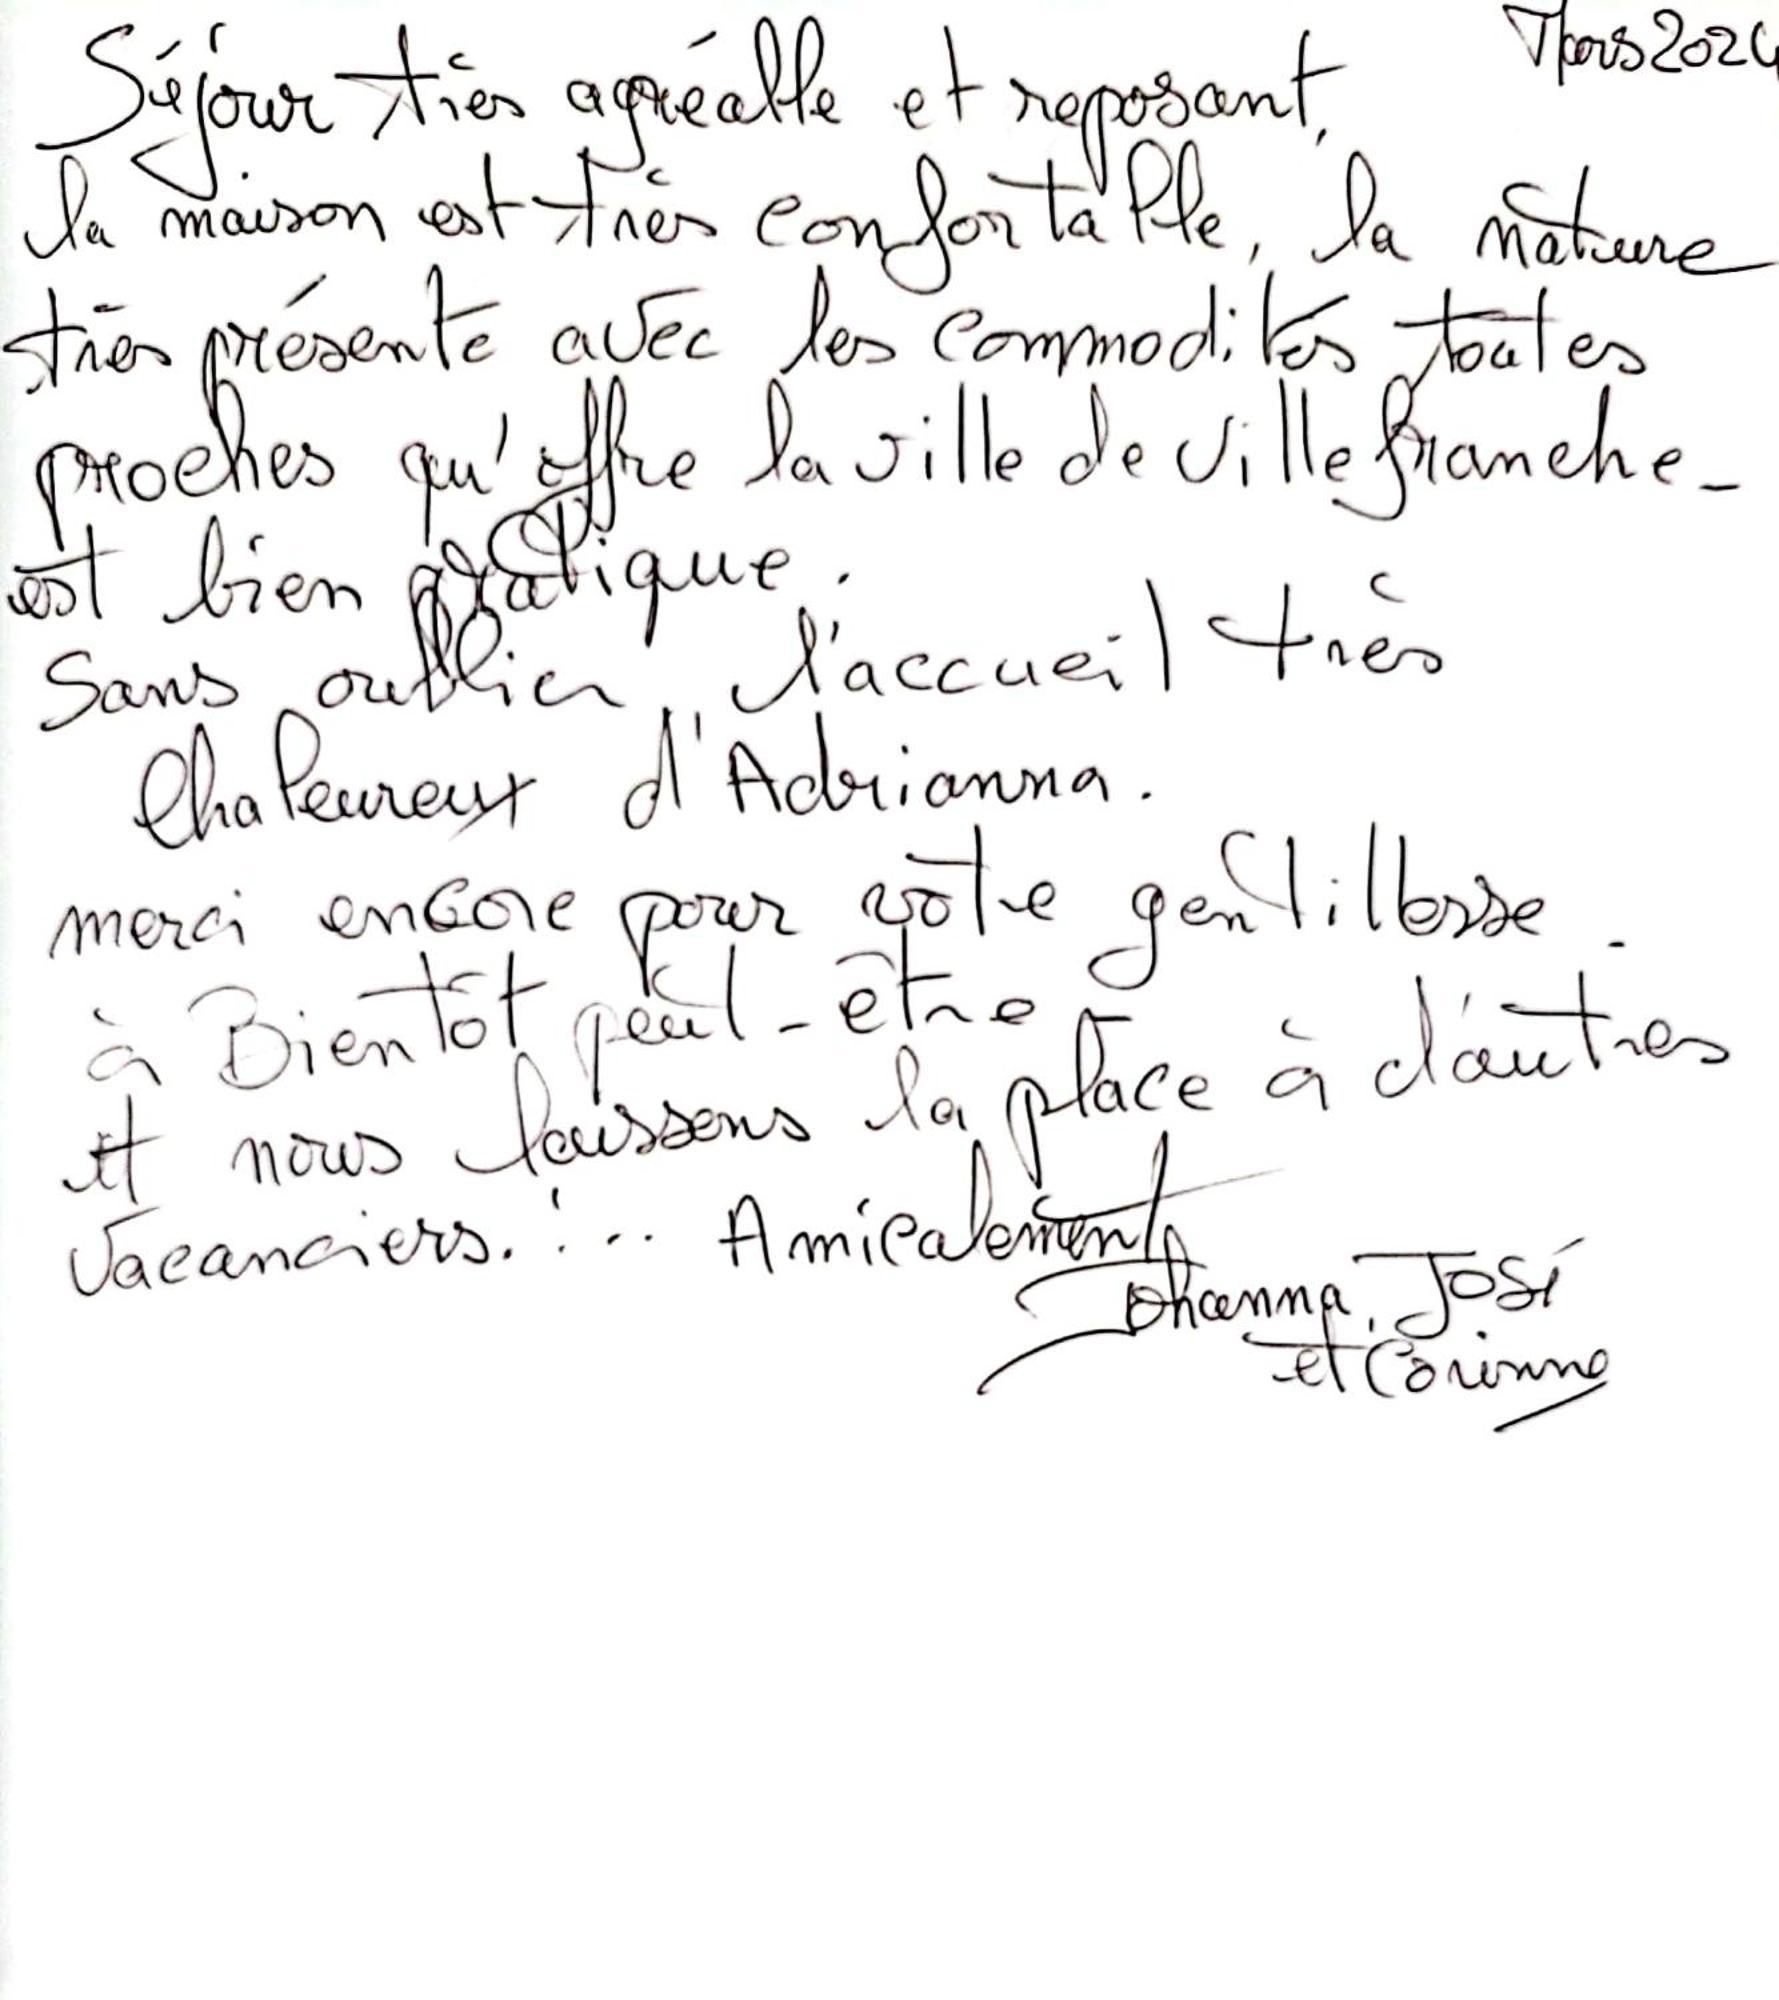 Mars 2024
Séjour très agréable et reposant,
la maison est très confortable, la nature
très présente avec les commodités toutes
proches qu'offre la ville de villefranche_
est bien pratique.
Sans oublier l'accueil très
Chaleureux d'Adrianna.
merci encore pour votre gentillesse.
à Bientôt peut-être
et nous laissons la place à d'autres
Vacanciers.!... Amicalement
Johanna, José
et Corinne